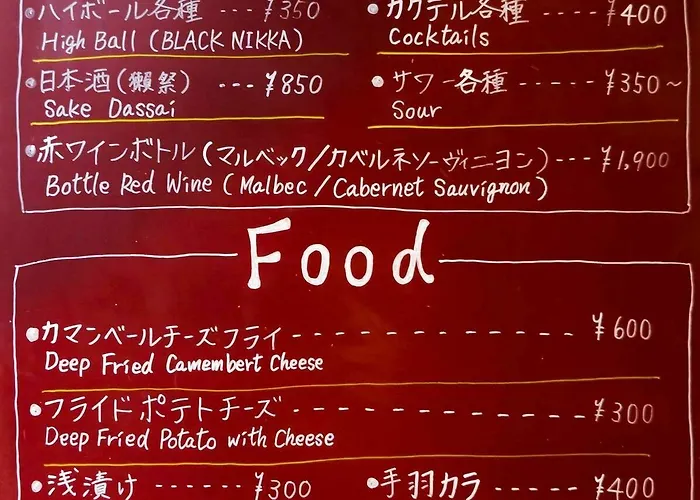 ●ハイボール各種 --- ¥350
High Ball (BLACK NIKKA)
●カクテル各種 ---- ¥400
Cocktails
●日本酒(獺祭) --- ¥850
Sake Dassai
●サワー各種 ----- ¥350~
Sour
●赤ワインボトル(マルベック/カベルネソーヴィニヨン)--- ¥1,900
Bottle Red Wine (Malbec/Cabernet Sauvignon)
Food
●カマンベールチーズフライ ------------- ¥600
Deep Fried Camembert Cheese
●フライドポテトチーズ ------------- ¥300
Deep Fried Potato with Cheese
●浅漬け ------ ¥300
●手羽カラ ----- ¥400